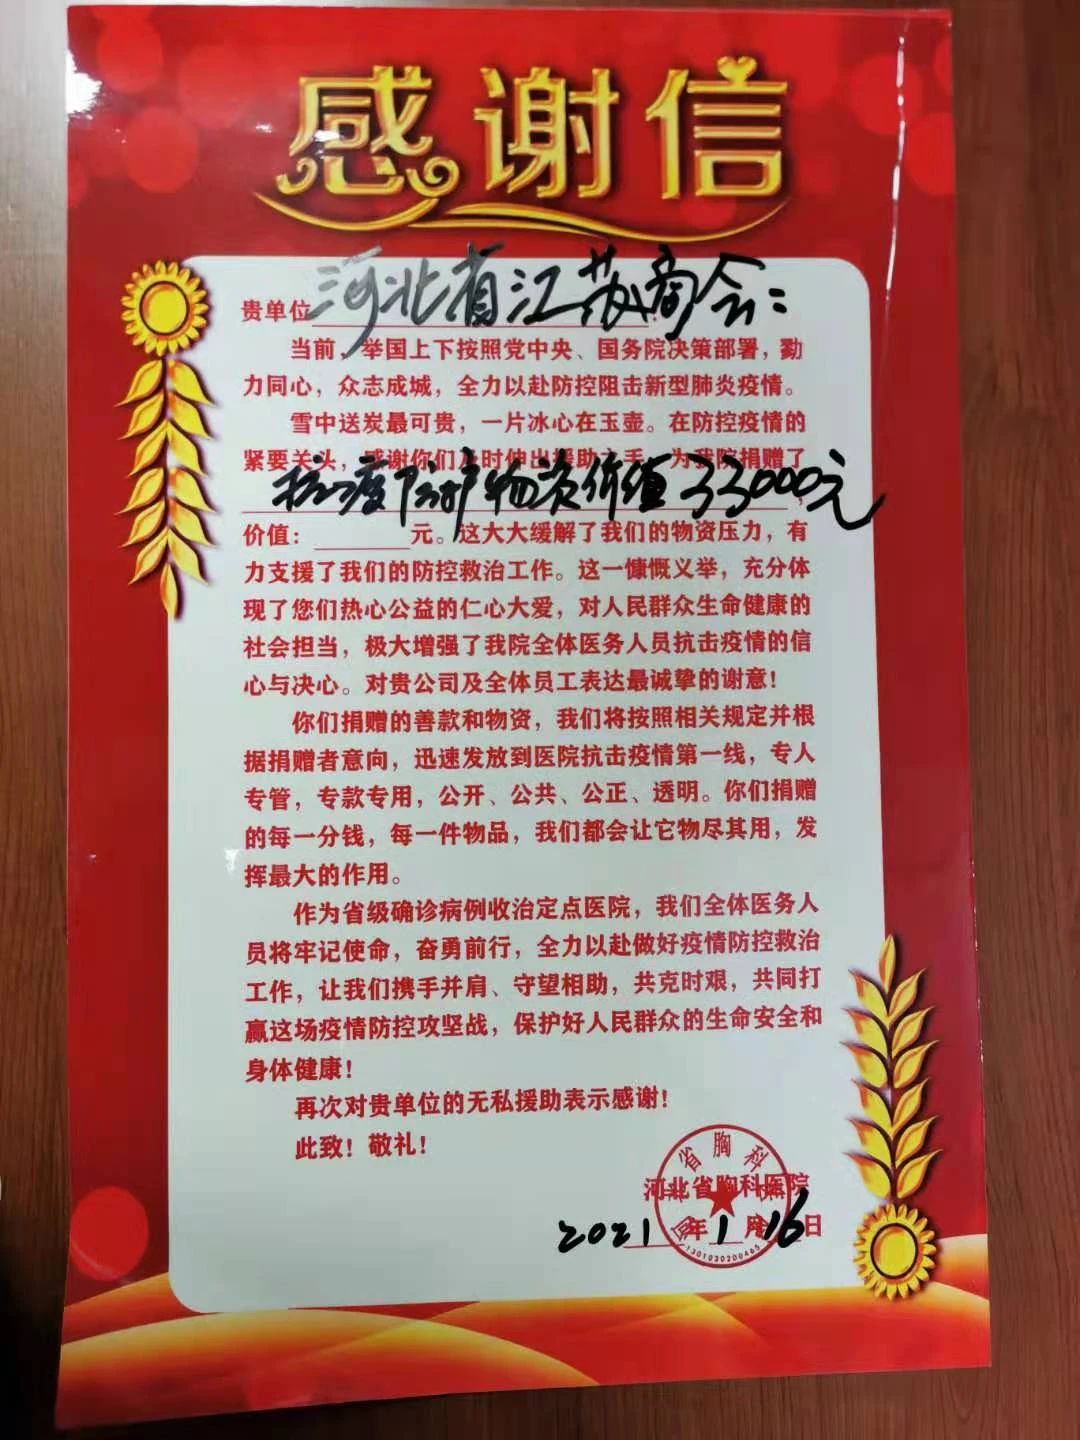 感谢信
贵单位河北省江苏商会：
当前，举国上下按照党中央、国务院决策部署，勠
力同心，众志成城，全力以赴防控阻击新型肺炎疫情。
雪中送炭最可贵，一片冰心在玉壶。在防控疫情的
紧要关头，感谢你们及时伸出援助之手，为我院捐赠了
抗疫防护物资价值33000元，
价值：元。这大大缓解了我们的物资压力，有
力支援了我们的防控救治工作。这一慷慨义举，充分体
现了您们热心公益的仁心大爱，对人民群众生命健康的
社会担当，极大增强了我院全体医务人员抗击疫情的信
心与决心。对贵公司及全体员工表达最诚挚的谢意！
你们捐赠的善款和物资，我们将按照相关规定并根
据捐赠者意向，迅速发放到医院抗击疫情第一线，专人
专管，专款专用，公开、公共、公正、透明。你们捐赠
的每一分钱，每一件物品，我们都会让它物尽其用，发
挥最大的作用。
作为省级确诊病例收治定点医院，我们全体医务人
员将牢记使命，奋勇前行，全力以赴做好疫情防控救治
工作，让我们携手并肩、守望相助，共克时艰，共同打
赢这场疫情防控攻坚战，保护好人民群众的生命安全和
身体健康！
再次对贵单位的无私援助表示感谢！
此致！敬礼！
省胸科
河北省胸科医院
2021年1月16日
1301030200465